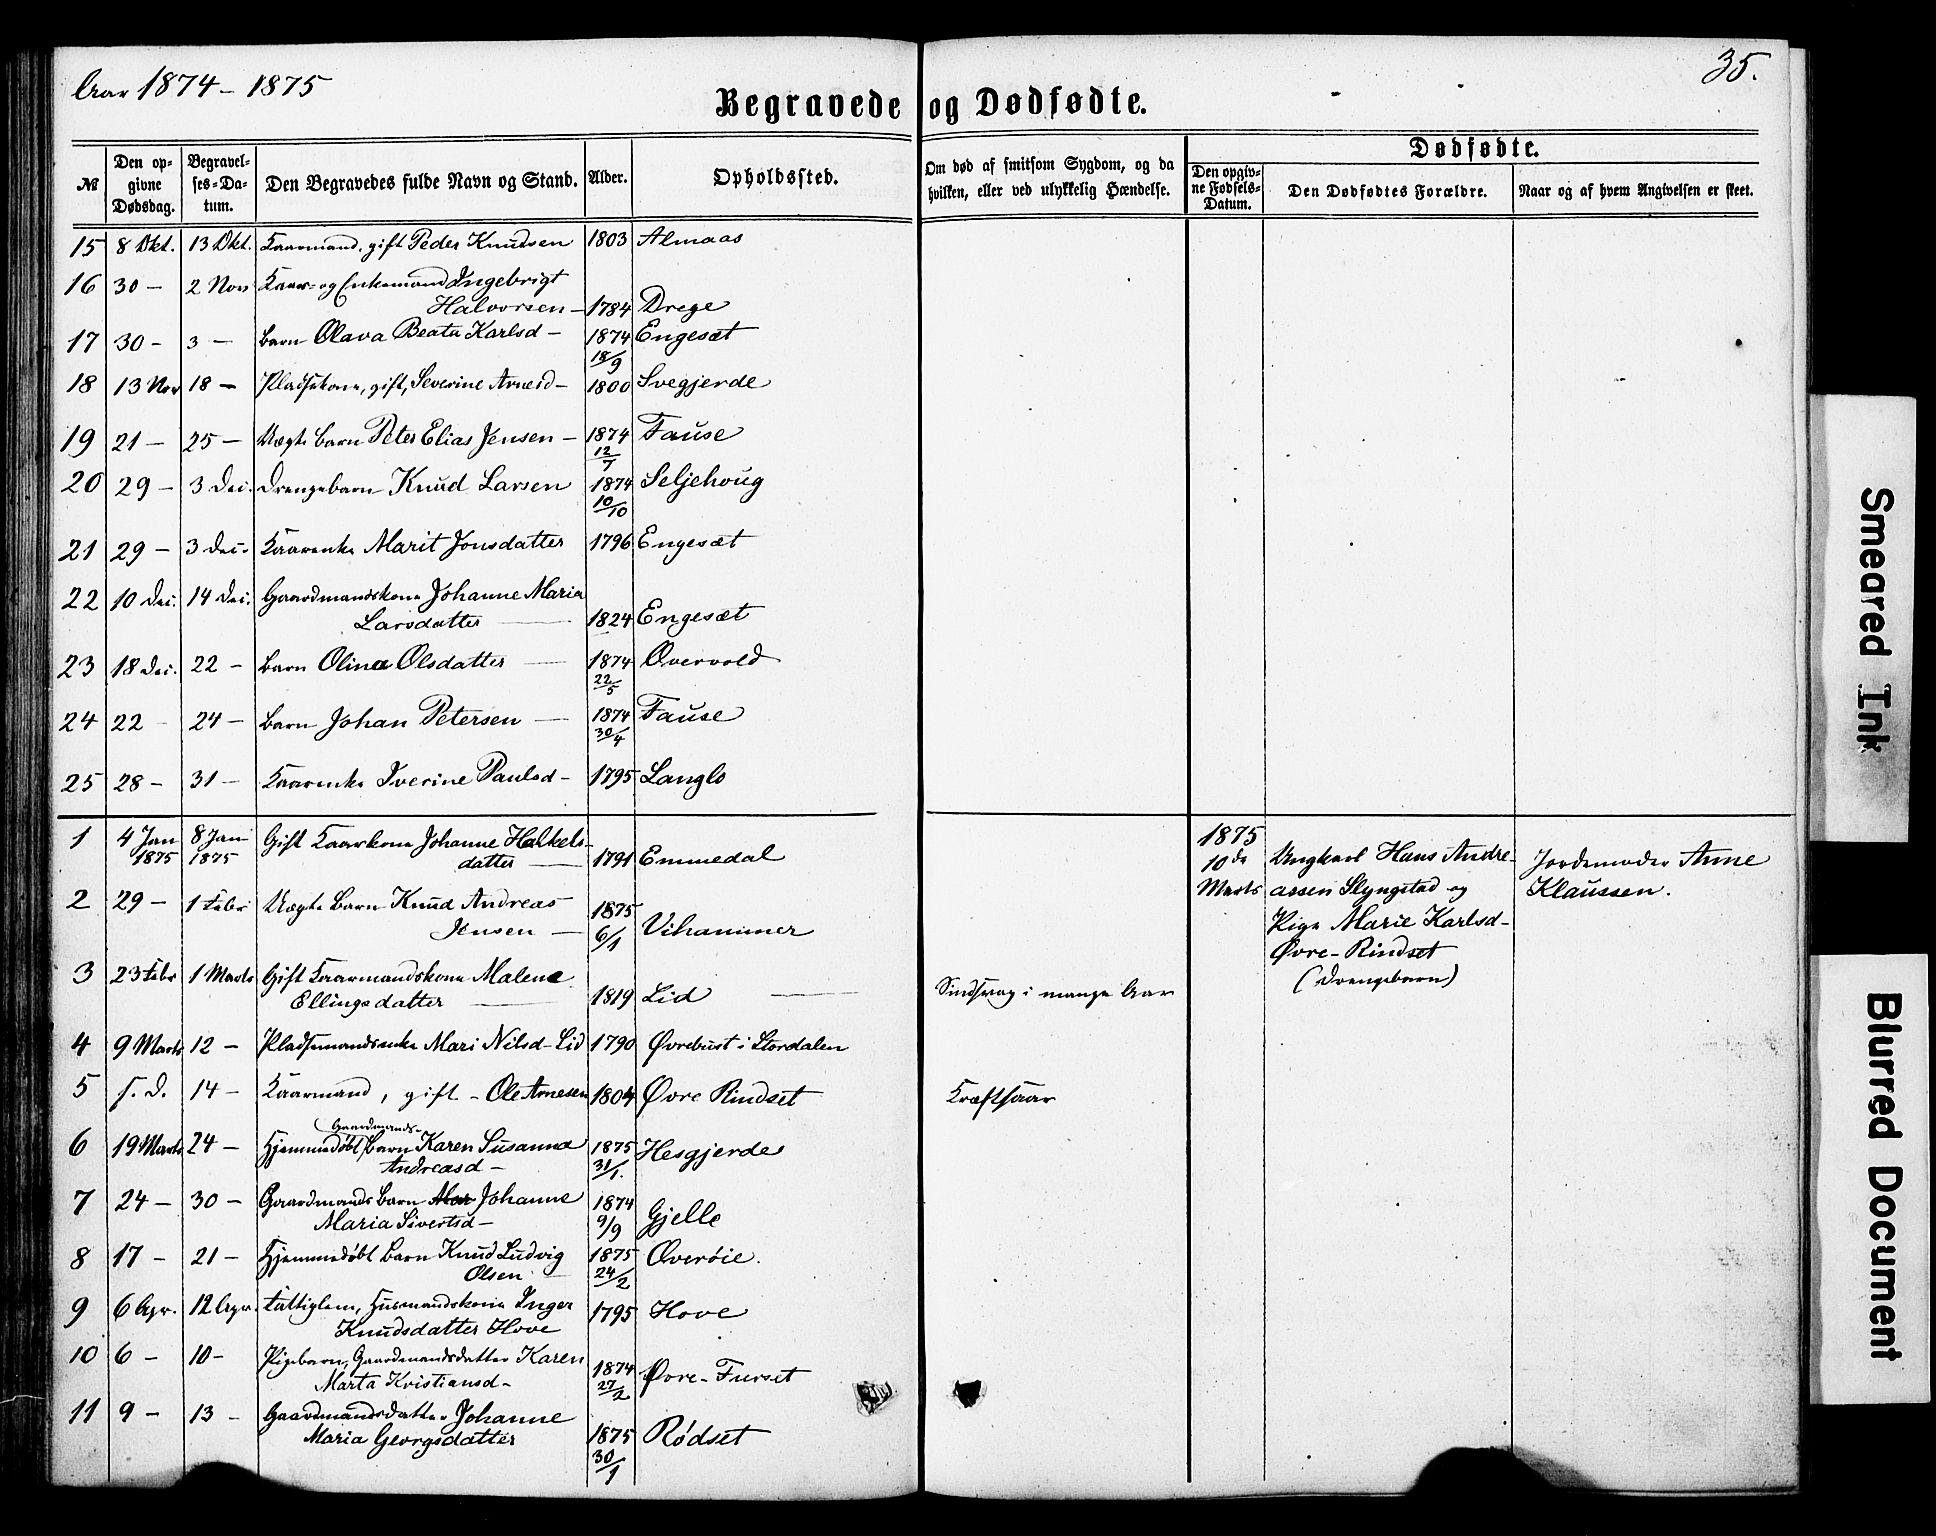 Aar 1874 - 1875
35.
Begravede og Dødfødte.
№
Den opgivne Dødsdag.
Begravelses-Datum.
Den Begravedes fulde Navn og Stand.
Alder.
Opholdssted.
Om død af smitsom Sygdom, og da hvilken, eller ved ulykkelig Hændelse.
Dødfødte.
Den opgivne Fødsels-Datum.
Den Dødfødtes Forældre.
Naar og af hvem Angivelsen er skeet.
15 8 Okt. 13 Okt. Kaarmand, gift Peder Knudsen 1803 Almaas
16 30 - 2 Nov Kaar- og Enkemand Ingebrigt
Halvorsen - 1784 Drege
17 30 - 3 - Barn Olava Beata Karlsd - 1874 Engesæt
18/9
18 13 Nov 18 - Pladsekone, gift, Severine Arnesd - 1800 Svegjerde
19 21 - 25 - Uægte Barn Peter Elias Jensen - 1874 Fause
12/7
20 29 - 3 Dec. Drengebarn Knud Larsen 1874 Seljehoug
10/10
21 29 - 3 Dec. Kaarenke Marit Jonsdatter 1796 Engesæt
22 10 Dec. 14 Dec. Gaardmandskone Johanne Maria
Larsdatter 1824 Engesæt
23 18 Dec. 22 - Barn Olina Olsdatter 1874 Overvold
22/5
24 22 - 24 - Barn Johan Petersen - 1874 Fause
30/4
25 28 - 31 - Kaarenke Iverine Paulsd - 1795 Langlo
1 4 Jan 8 Jan Gift Kaarkone Johanne Halkels-
1875 1875 datter - 1791 Emmedal
2 29 - 1 Febr Uægte Barn Knud Andreas 1875
Jensen - 6/1 Vihammer
3 23 Febr 1 Marts Gift Kaarmandskone Malene
Ellingsdatter 1819 Lid
Sindssvag i mange Aar
4 9 Marts 12 - Pladsemandsenke Mari Nilsd - Lid 1790 Øvrebust i Stordalen
5 s. D. 14 - Kaarmand, gift - Ole Arnesen 1804 Øvre Rindset
Kræftsaar
Gaardmands-
6 19 Marts 24 - Hjemmedøbt Barn Karen Susanna 1875 Hesgjerde
Andreasd - 31/1.
7 24 - 30 - Gaardmands Barn Mar Johanne 1874
Maria Sivertsd - 9/9 Gjelle
8 17 - 21 - Hjemmedøbt Barn Knud Ludvig 1875 Overøie.
Olsen - 24/2
9 6 Apr. 12 Apr. Fattiglem, Husmandskone Inger 1795 Hove
Knudsdatter Hove
10 6 - 10 - Pigebarn, Gaardmandsdatter Karen 1874
Marta Kristiansd - 27/2 Øvre-Furset
11 9 - 13 - Gaardmandsdatter Johanne
Maria Georgsdatter 1875 Rødset
30/1
1875
10de
Marts
Ungkarl Hans Andre-
assen Slyngstad og
Pige Marie Karlsd -
Øvre-Rindset
(Drengebarn)
Jordemoder Anne
Klaussen.
Smeared Ink
Blurred Document